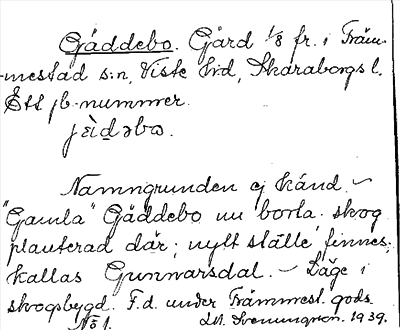 Gäddebo. Gård 1/8 fr. i Träm-
mestad s:n, Viste h:d, Skaraborgs l.
Ett jb.-nummer.
jèi̯dəbω.
Namngrunden ej känd. –
"Gamla" Gäddebo nu borta. skog
planterad där; nytt ställe finnes;
kallas Gunnarsdal. – Läge i
skogsbygd. F.d. under Främmest. gods.
No 1. M. Svenungson. 1939.